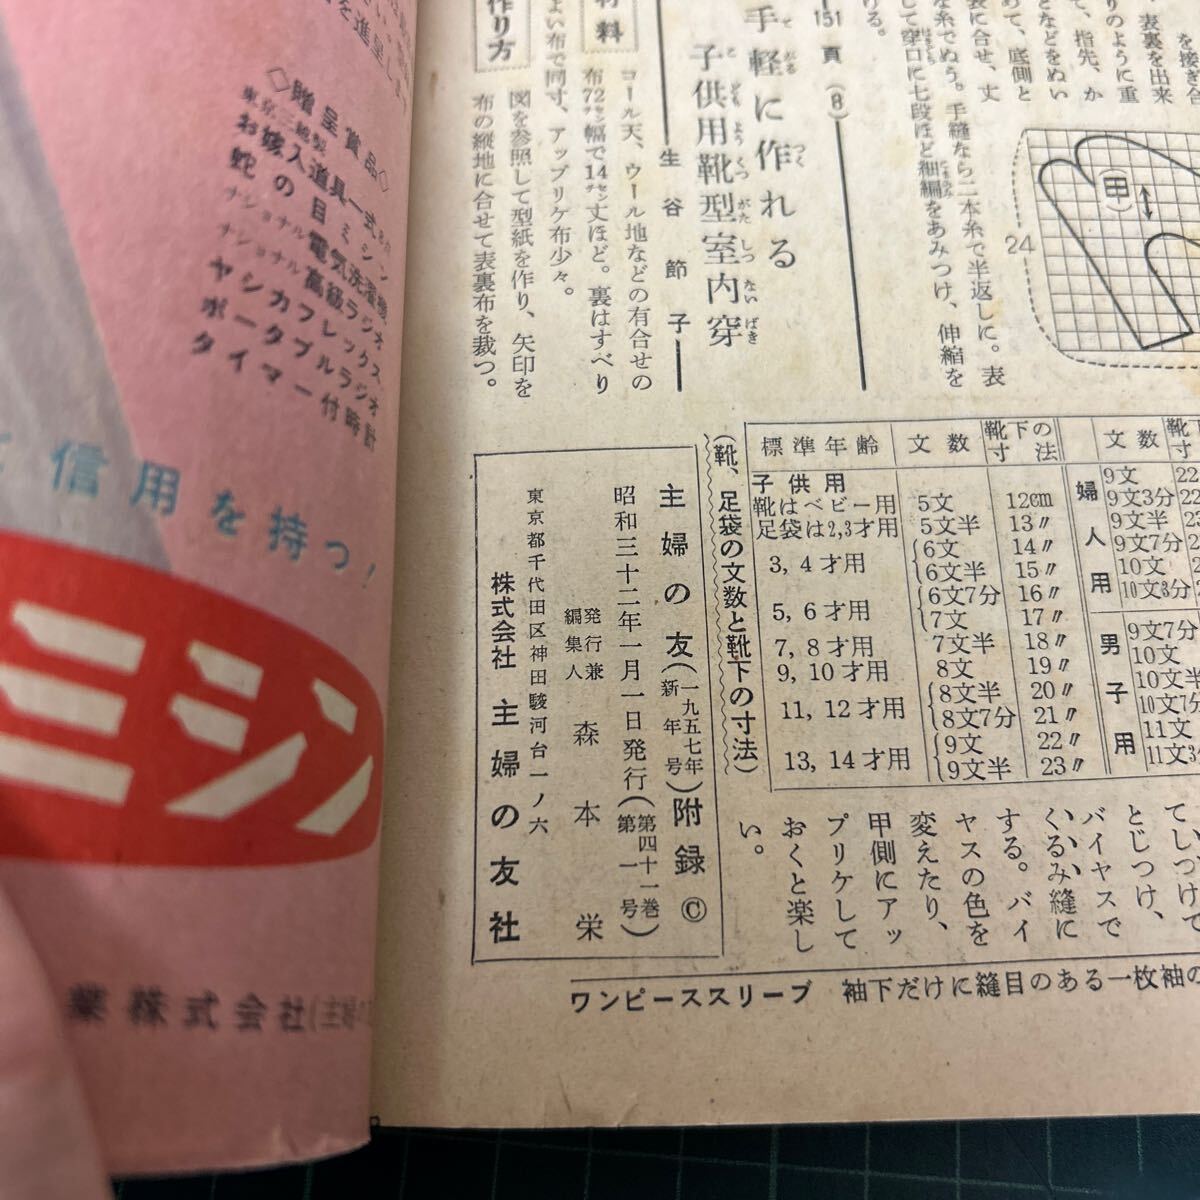 を接ぎ合
、表裏を出来
りのように重
て、指先、か
となどをぬい
めて、底側と
袋に合せ、丈
な糸でぬう。手縫なら二本糸で半返しに。表
して穿口に七段ほど細編をあみつけ、伸縮を
ける。
甲
24
151頁(8)
手軽に作れる
子供用靴型室内穿
生谷節子
材料
コール天、ウール地などの有合せの
布72センチ幅で14センチ丈ほど。裏はすべり
よい布で同寸、アップリケ布少々。
作り方
図を参照して型紙を作り、矢印を
布の縦地に合せて表裏布を裁つ。
(靴、足袋の文数と靴下の寸法)
標準年齢 文数 靴下の寸法
子供用
靴はベビー用 5文 12cm
足袋は2,3才用 5文半 13〃
3, 4才用 6文 14〃
6文半 15〃
5, 6才用 6文7分 16〃
7文 17〃
7, 8才用 7文半 18〃
9, 10才用 8文 19〃
11, 12才用 8文半 20〃
8文7分 21〃
13, 14才用 9文 22〃
9文半 23〃
文数
婦人用
9文 22
9文3分
9文半
9文7分
10文
10文3分
男子用
9文7分
10文
10文半
10文7分
11文
11文3
てしつけて
とじつけ、
バイヤスで
くるみ縫に
する。バイ
ヤスの色を
変えたり、
甲側にアッ
プリケして
おくと楽し
い。
主婦の友(一九五七年新年号)附録©
昭和三十二年一月一日発行(第四十一巻第一号)
発行兼編集人 森本栄
東京都千代田区神田駿河台一ノ六
株式会社 主婦の友社
ワンピーススリーブ 袖下だけに縫目のある一枚袖の
を進呈し
◇贈呈賞品◇
東京三越製
お嫁入道具一式
蛇の目ミシン
ナショナル電気洗濯機
ナショナル高級ラジオ
ヤシカフレックス
ポータブルラジオ
タイマー付時計
信用を持つ!
ミシン
業株式会社